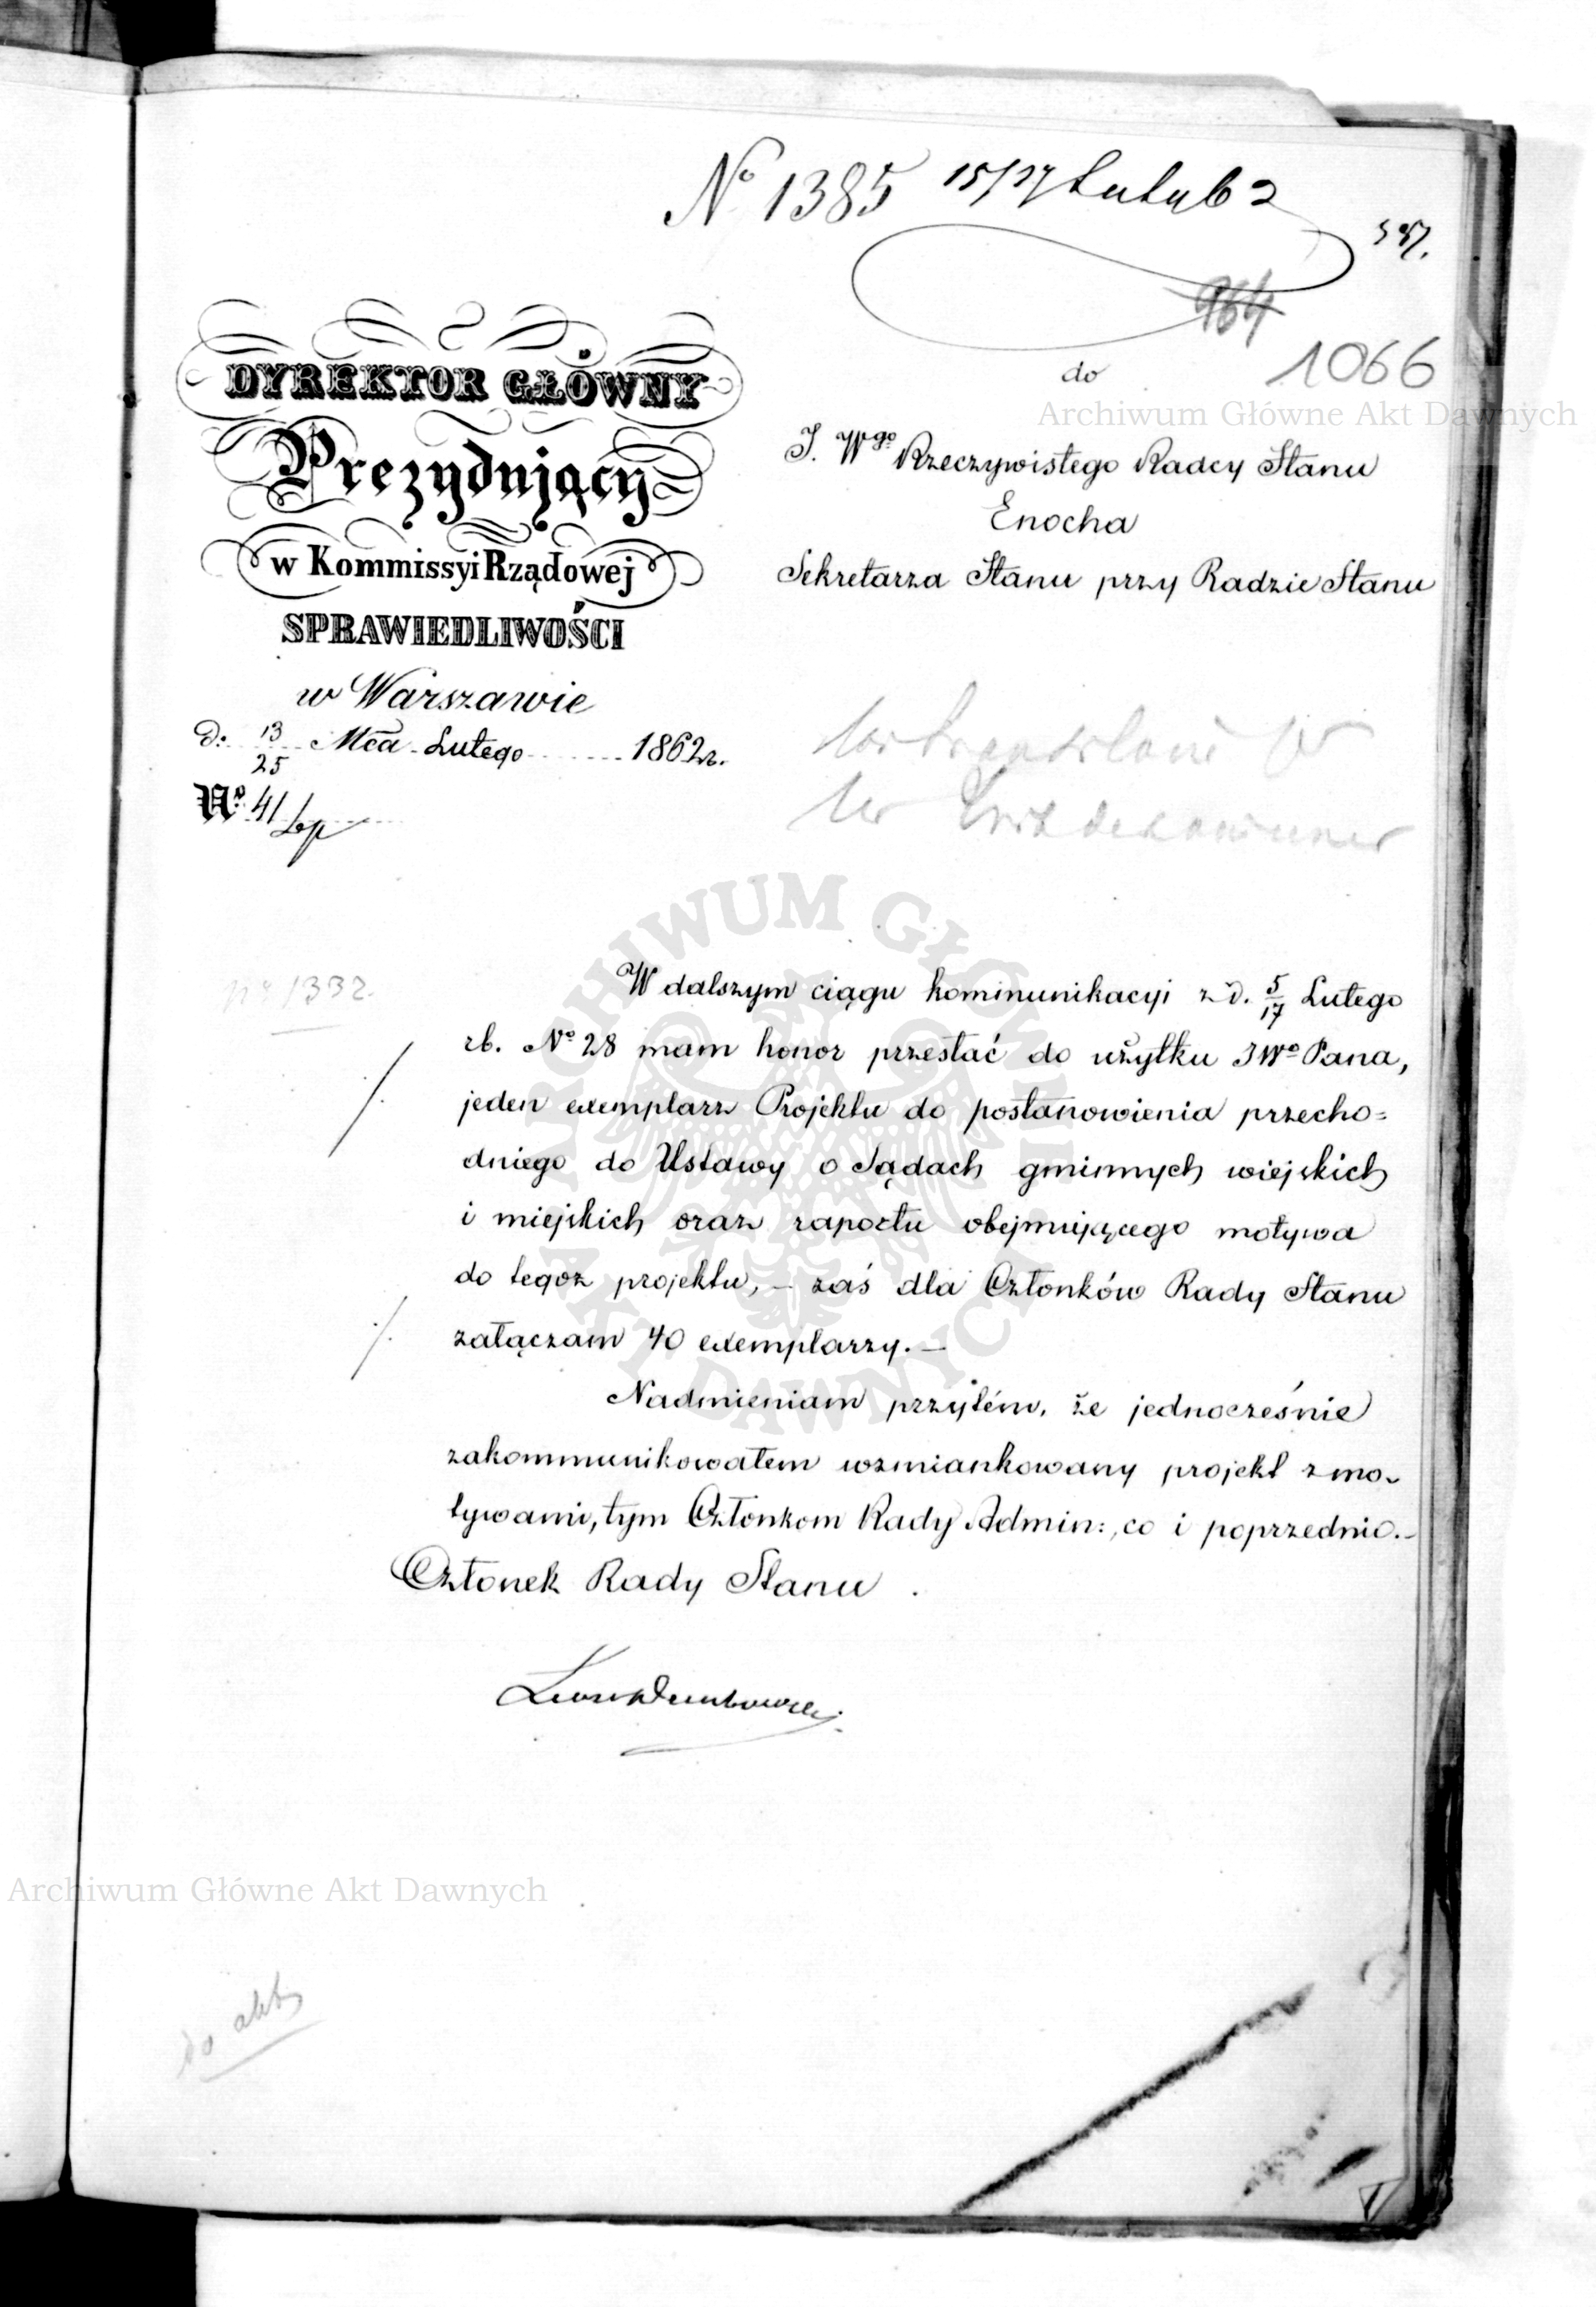 Nº 1385 15/27 Lut 62
964
1066
do
Archiwum Główne Akt Dawnych
DYREKTOR GŁÓWNY
Prezydujący
w Kommissyi Rządowej
SPRAWIEDLIWOŚCI
w Warszawie
d: 13/25 Mca Lutego 1862 r.
Nº 41
J. Wgo Rzeczywistego Radcy Stanu
Enocha
Sekretarza Stanu przy Radzie Stanu
Nº 1332.
W dalszym ciągu kommunikacyi z d. 5/17 Lutego
rb. Nº 28 mam honor przesłać do użytku JWo Pana,
jeden exemplarz Projektu do postanowienia przecho=
dniego do Ustawy o Sądach gminnych wiejskich
i miejskich oraz raportu obejmującego motywa
do tegoż projektu, – zaś dla Członków Rady Stanu
załączam 40 exemplarzy. –
Nadmieniam przytém, że jednocześnie
zakommunikowałem wzmiankowany projekt z mo-
tywami, tym Członkom Rady Admin:, co i poprzednio. –
Członek Rady Stanu
ARCHIWUM GŁÓWNE
AKT DAWNYCH
Archiwum Główne Akt Dawnych
do akt